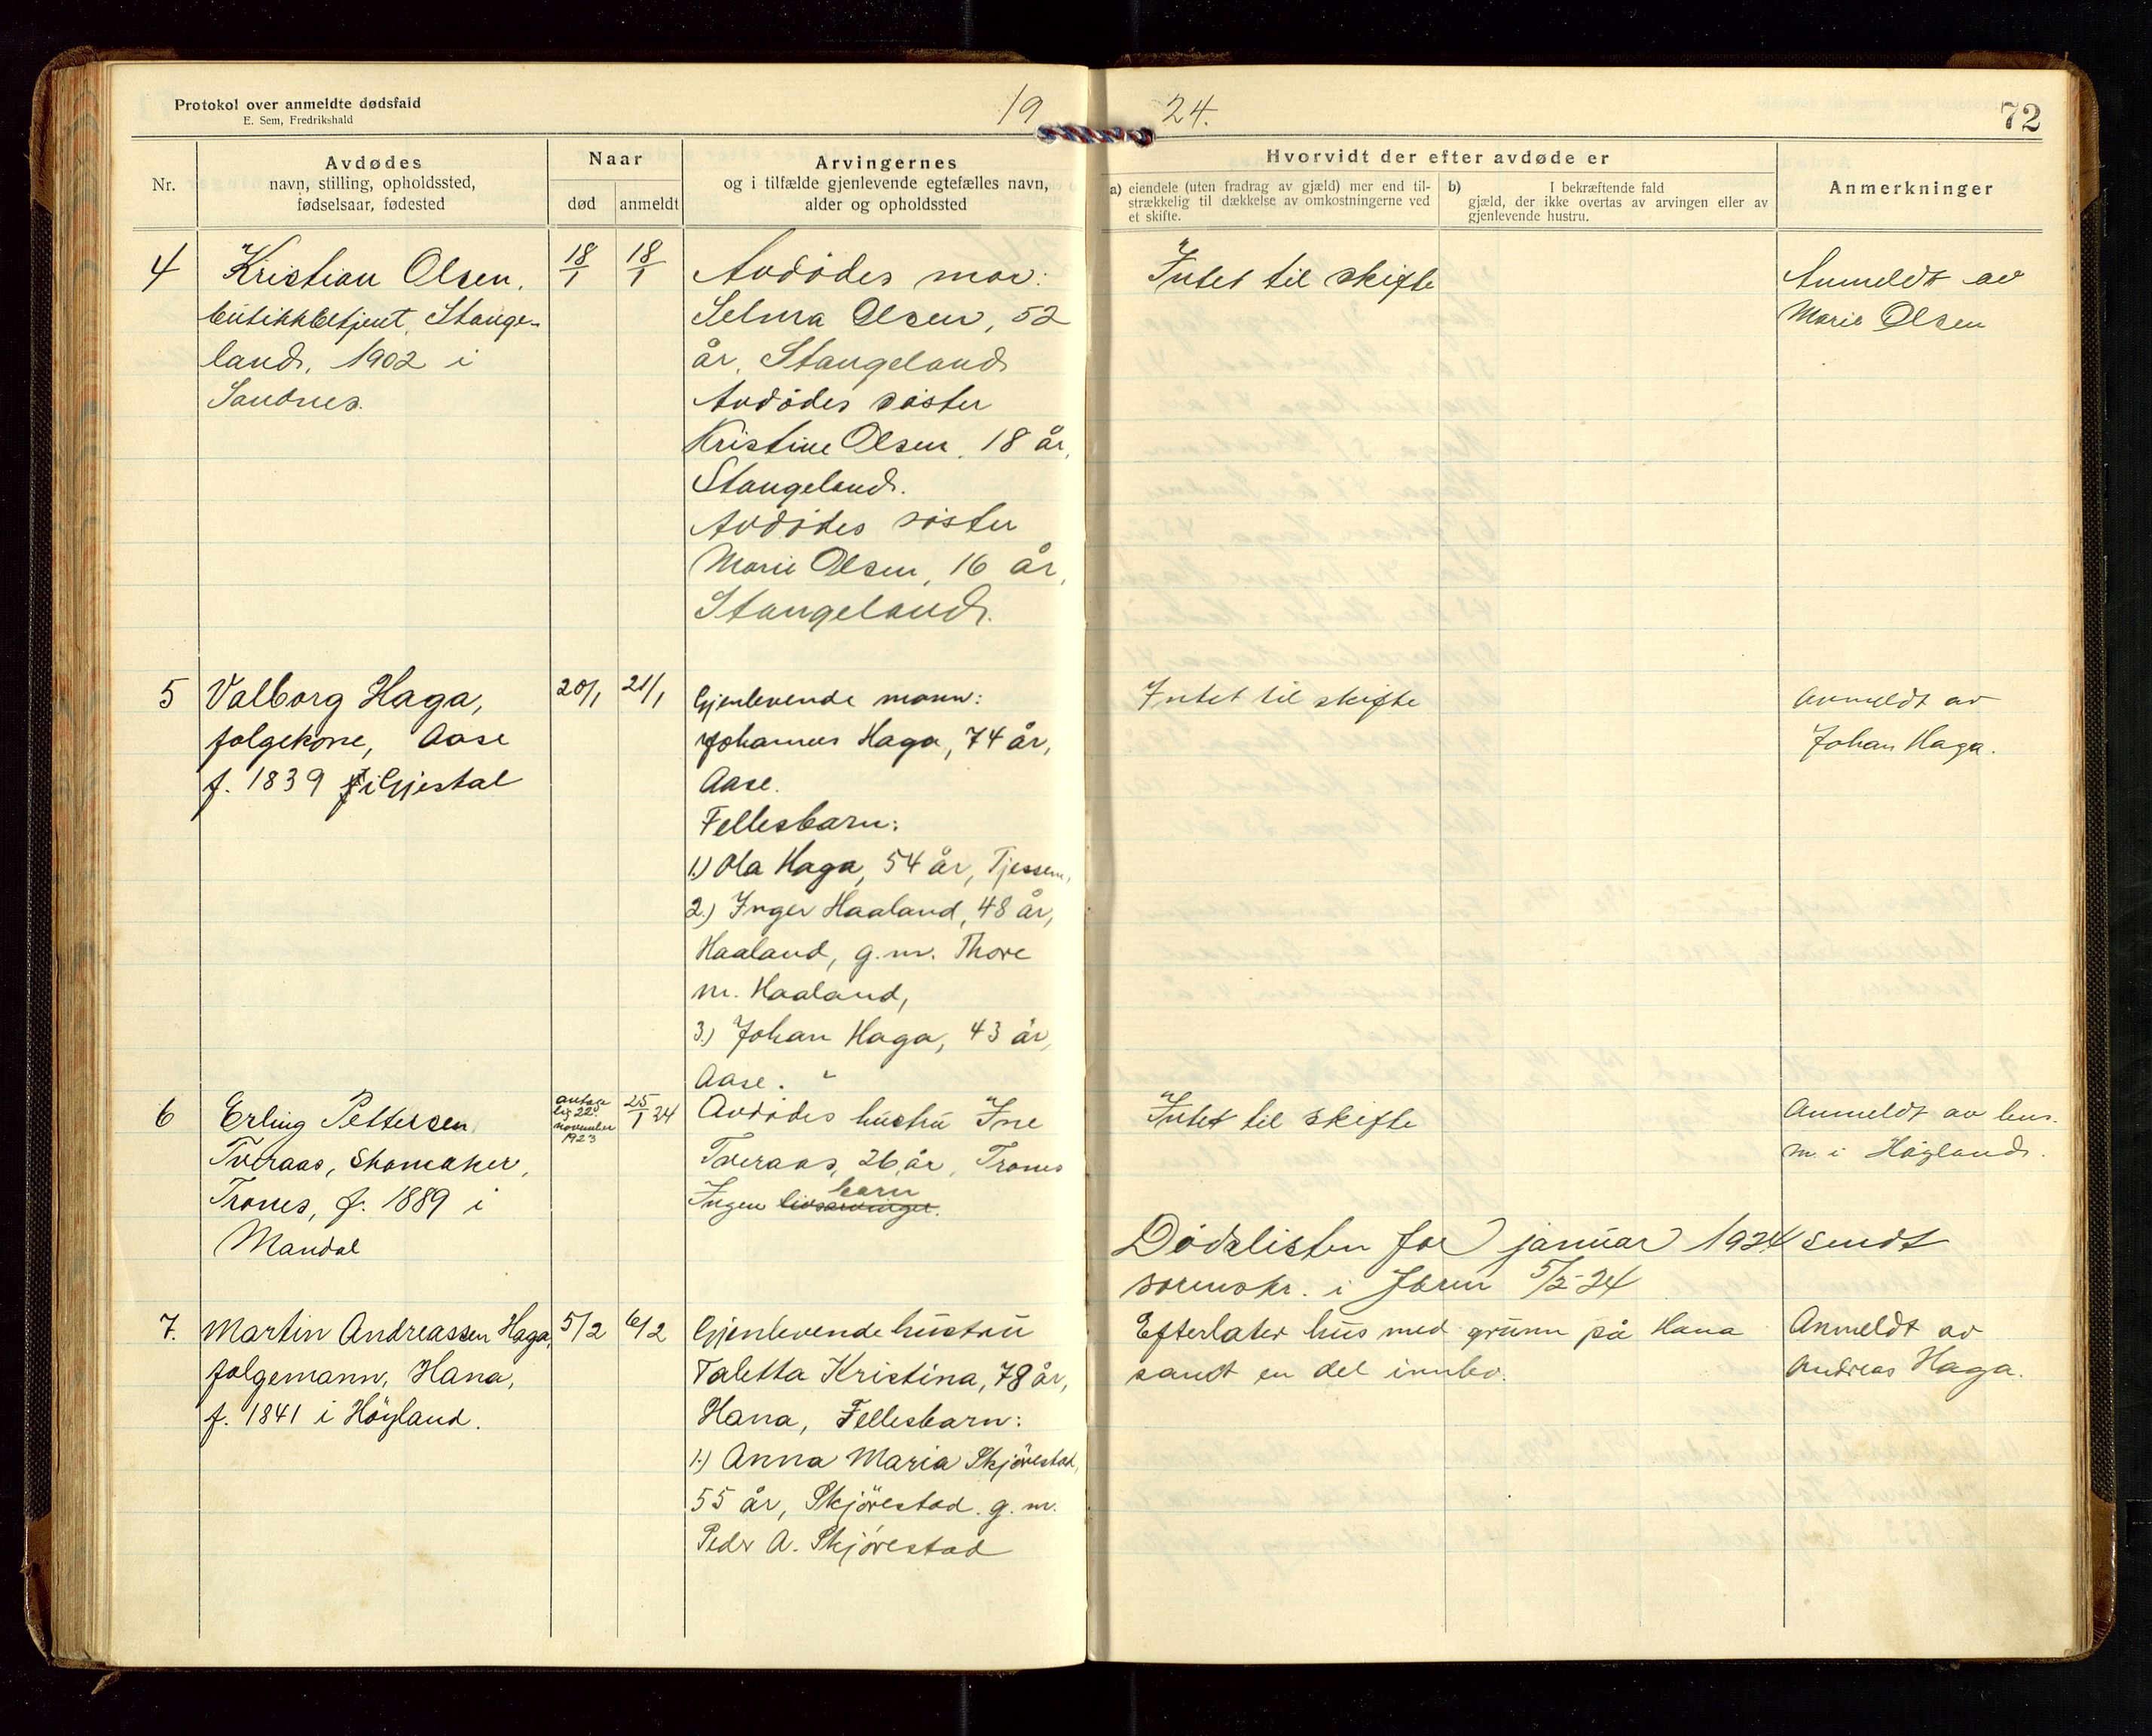 Protokol over anmeldte dødsfald
E. Sem, Fredrikshald
19 24.
72
Nr.
Avdødes
navn, stilling, opholdssted,
fødselsaar, fødested
Naar
død
anmeldt
Arvingernes
og i tilfælde gjenlevende egtefælles navn,
alder og opholdssted
Hvorvidt der efter avdøde er
a) eiendele (uten fradrag av gjæld) mer end til-
strækkelig til dækkelse av omkostningerne ved
et skifte.
b) I bekræftende fald
gjæld, der ikke overtas av arvingen eller av
gjenlevende hustru.
Anmerkninger
4
Kristian Olsen,
butikkbetjent, Stange-
land, 1902 i
Sandnes.
18/1
18/1
Avdødes mor:
Selma Olsen, 52
år, Stangeland
Avdødes søster
Kristine Olsen, 18 år,
Stangeland.
Avdødes søster
Marie Olsen, 16 år,
Stangeland.
Intet til skifte
Anmeldt av
Marie Olsen
5
Valborg Haga,
folgekone, Aase
f. 1839 i Gjestal
20/1
21/1
Gjenlevende mann:
Johannes Haga, 74 år,
Aase.
Fellesbarn:
1.) Ola Haga, 54 år, Tjessem,
2.) Inger Haaland, 48 år,
Haaland, g.m. Thore
M. Haaland,
3.) Johan Haga, 43 år,
Aase.
Intet til skifte
Anmeldt av
Johan Haga.
6
Erling Pettersen
Tveraas, skomaker,
Trones, f. 1889 i
Mandal
antage
lig 22.
november
1923
25/1 24
Avdødes hustru Ine
Tveraas, 26 år, Trones
Ingen livsarvinger. barn
Intet til skifte
Anmeldt av lens-
m. i Høyland.
Dødslisten for januar 1924 sendt
sorenskr. i Jæren 5/2-24
7.
Martin Andreassen Haga,
folgemann, Hana,
f. 1841 i Höyland.
5/2
6/2
Gjenlevende hustru
Taletta Kristina, 78 år,
Hana, Fellesbarn:
1.) Anna Maria Skjörestad,
55 år, Skjörestad. g.m.
Peder A. Skjörestad
Efterlater hus med grunn på Hana
samt en del innbo.
Anmeldt av
Andreas Haga.